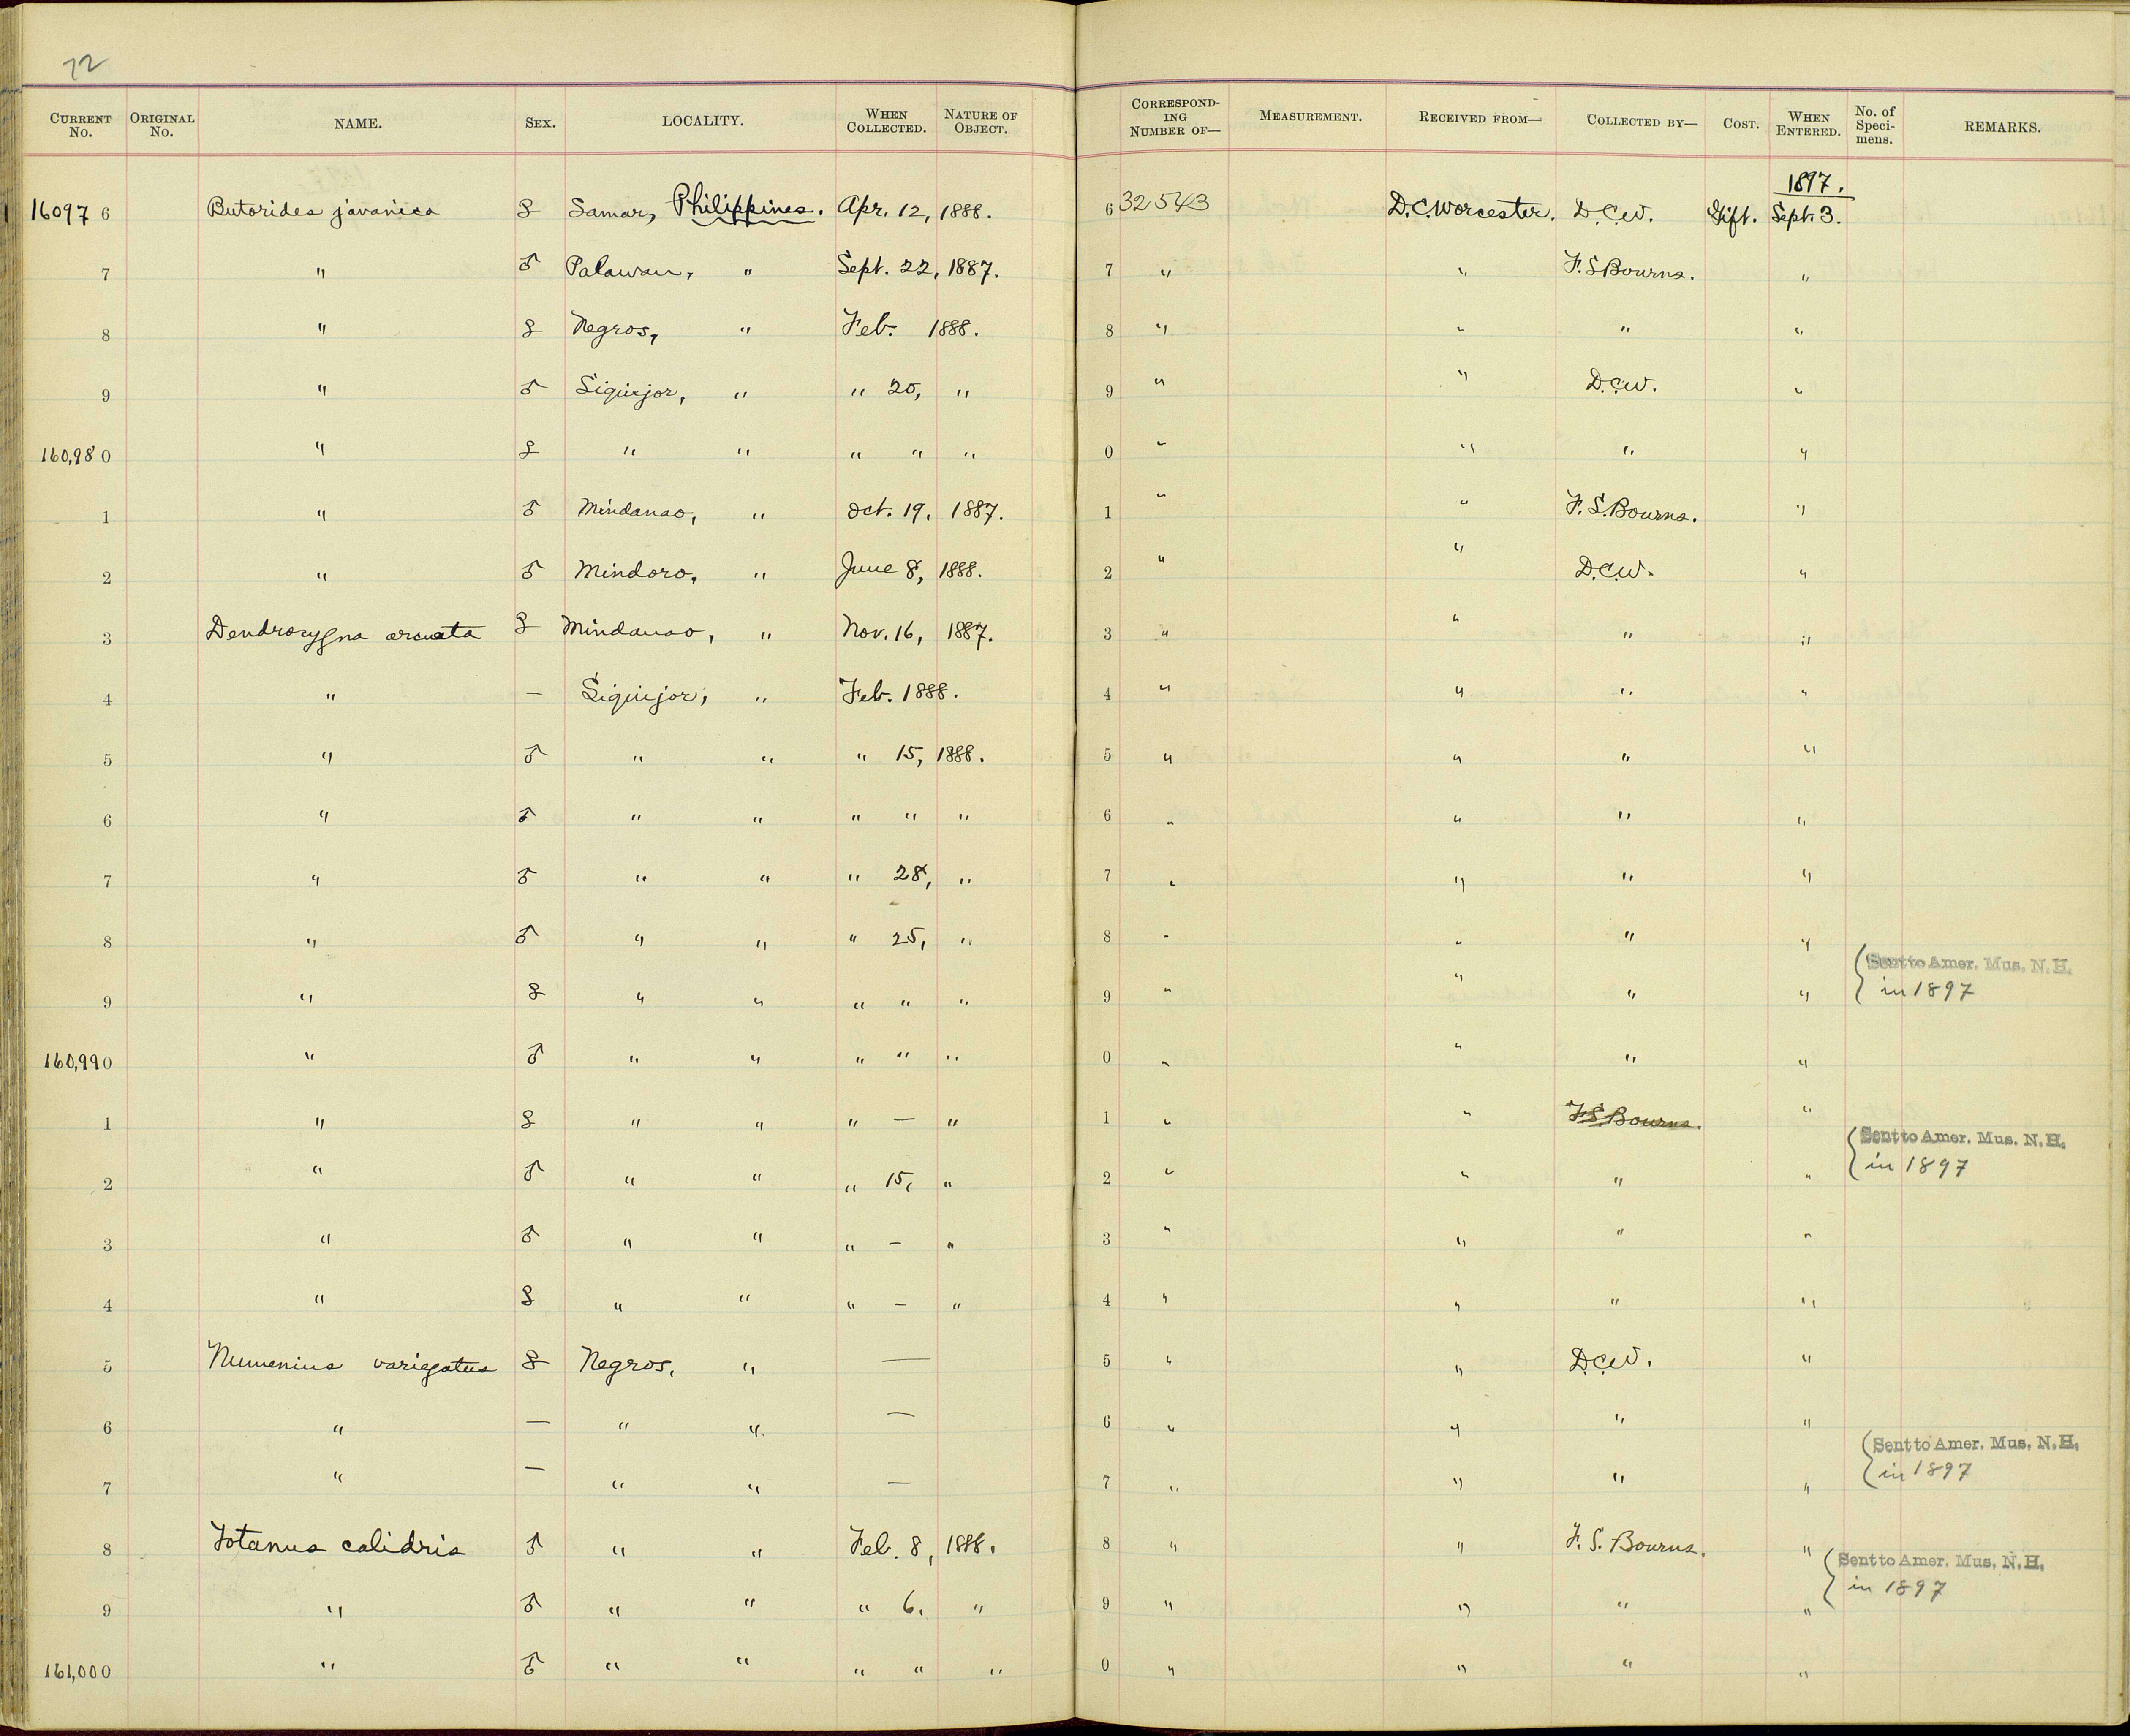 72
CURRENT No. ORIGINAL No. NAME. SEX. LOCALITY. WHEN COLLECTED. NATURE OF OBJECT. CORRESPONDING NUMBER OF— MEASUREMENT. RECEIVED FROM— COLLECTED BY— COST. WHEN ENTERED. No. of Specimens. REMARKS.
1897.
16097 6 Butorides javanica ♀ Samar, Philippines. Apr. 12, 1888. 6 32543 D.C. Worcester. D.C.W. Gift. Sept. 3.
7 " ♂ Palawan, " Sept. 22, 1887. 7 " " F.S. Bourns. "
8 " ♀ Negros, " Feb. 1888. 8 " " " "
9 " ♂ Siquijor, " " 20, " 9 " " D.C.W. "
160,98 0 " ♀ " " " " " 0 " " " "
1 " ♂ Mindanao, " Oct. 19, 1887. 1 " " F.S. Bourns. "
2 " ♂ Mindoro, " June 8, 1888. 2 " " D.C.W. "
3 Dendrocygna arcuata ♀ Mindanao, " Nov. 16, 1887. 3 " " " "
4 " — Siquijor, " Feb. 1888. 4 " " " "
5 " ♂ " " " 15, 1888. 5 " " " "
6 " ♂ " " " " " 6 " " " "
7 " ♂ " " " 28, " 7 " " " "
8 " ♂ " " " 25, " 8 " " " " { Sent to Amer. Mus. N.H.
9 " ♀ " " " " " 9 " " " " in 1897
160,99 0 " ♂ " " " " " 0 " " " "
1 " ♀ " " " — " 1 " " F.S. Bourns. " { Sent to Amer. Mus. N.H.
2 " ♂ " " " 15, " 2 " " " " in 1897
3 " ♂ " " " — " 3 " " " "
4 " ♀ " " " — " 4 " " " "
5 Numenius variegatus ♀ Negros, " — 5 " " D.C.W. "
6 " — " " — 6 " " " " { Sent to Amer. Mus. N.H.
7 " — " " — 7 " " " " in 1897
8 Totanus calidris ♂ " " Feb. 8, 1888. 8 " " F.S. Bourns. " { Sent to Amer. Mus. N.H.
9 " ♂ " " " 6, " 9 " " " " in 1897
161,00 0 " ♂ " " " " " 0 " " " "